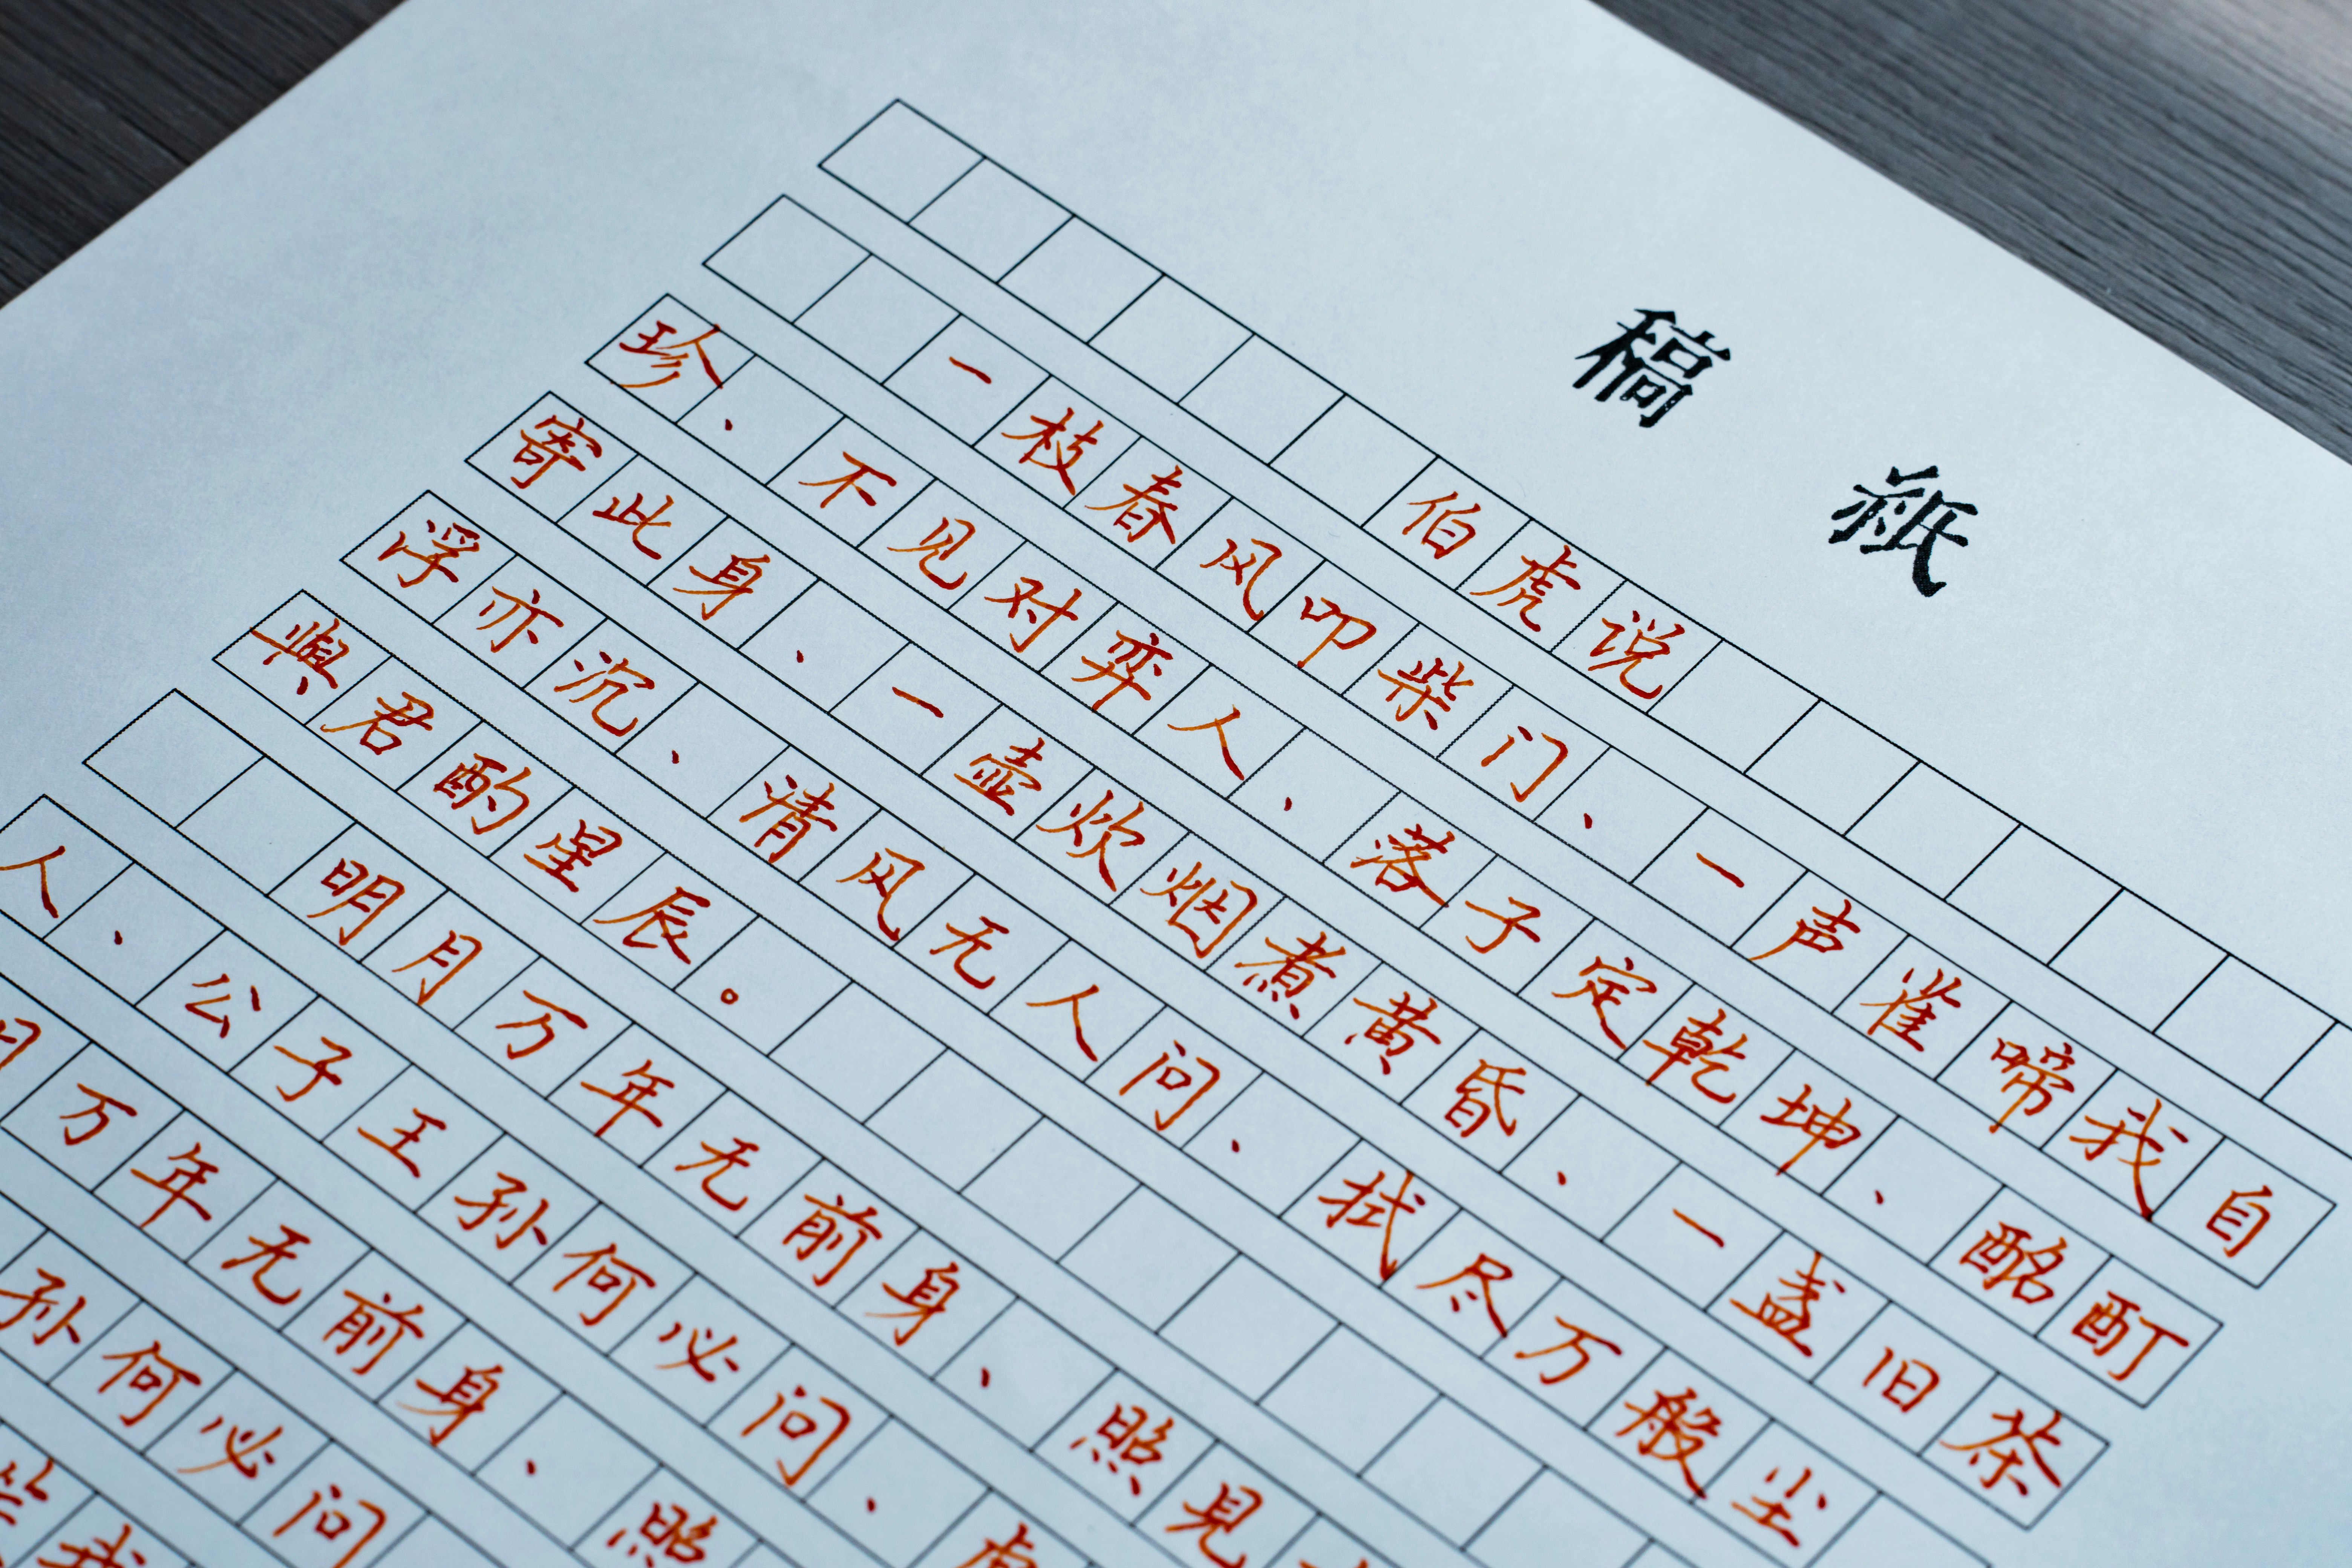 稿紙
伯虎说
一枝春风叩柴门、一声雀啼我自
珍、不见对弈人、落子定乾坤、酩酊
寄此身、一壶炊烟煮黄昏、一盏旧茶
浮亦沉、清风无人问、拭尽万般尘
與君酌星辰。
明月万年无前身、照見
人、公子王孙何必问、
月万年无前身、照
孙何必问
我